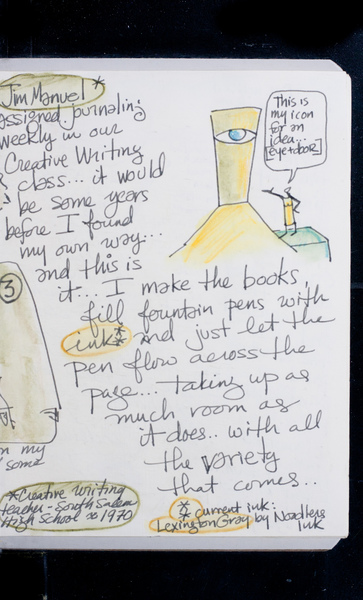 Jim Manuel *
assigned journaling
weekly in our
Creative Writing
class... it would
be some years
before I found
my own way...
and this is
it... I make the books,
fill fountain pens with
ink* and just let the
pen flow across the
page... taking up as
much room as
it does.. with all
the variety
that comes..
This is
my icon
for an
idea...
[eye+door]
3
n my
some
*Creative Writing
teacher - South Salem
High School ≈ 1970
* current ink:
Lexington Gray by Noodlers
Ink